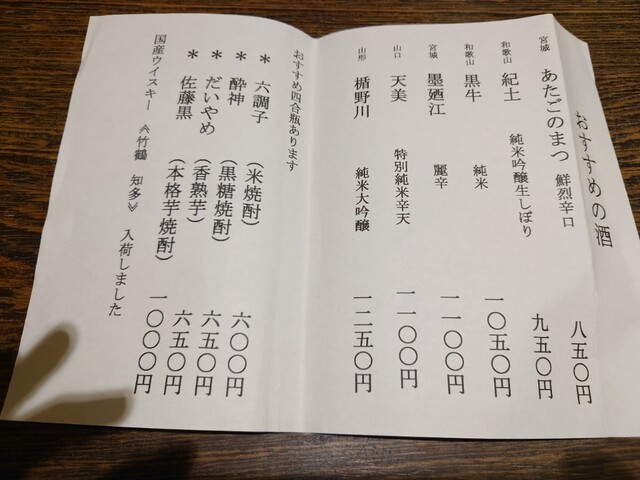 おすすめの酒
宮城 あたごのまつ 鮮烈辛口 八五〇円
和歌山 紀土 純米吟醸生しぼり 九五〇円
和歌山 黒牛 純米 一〇五〇円
宮城 墨廼江 麗辛 一一〇〇円
山口 天美 特別純米辛天 一一〇〇円
山形 楯野川 純米大吟醸 一二五〇円
おすすめ四合瓶あります
* 六調子 (米焼酎) 六〇〇円
* 酔神 (黒糖焼酎) 六五〇円
* だいやめ (香熟芋) 六五〇円
* 佐藤黒 (本格芋焼酎) 一〇〇〇円
国産ウイスキー 《竹鶴 知多》 入荷しました